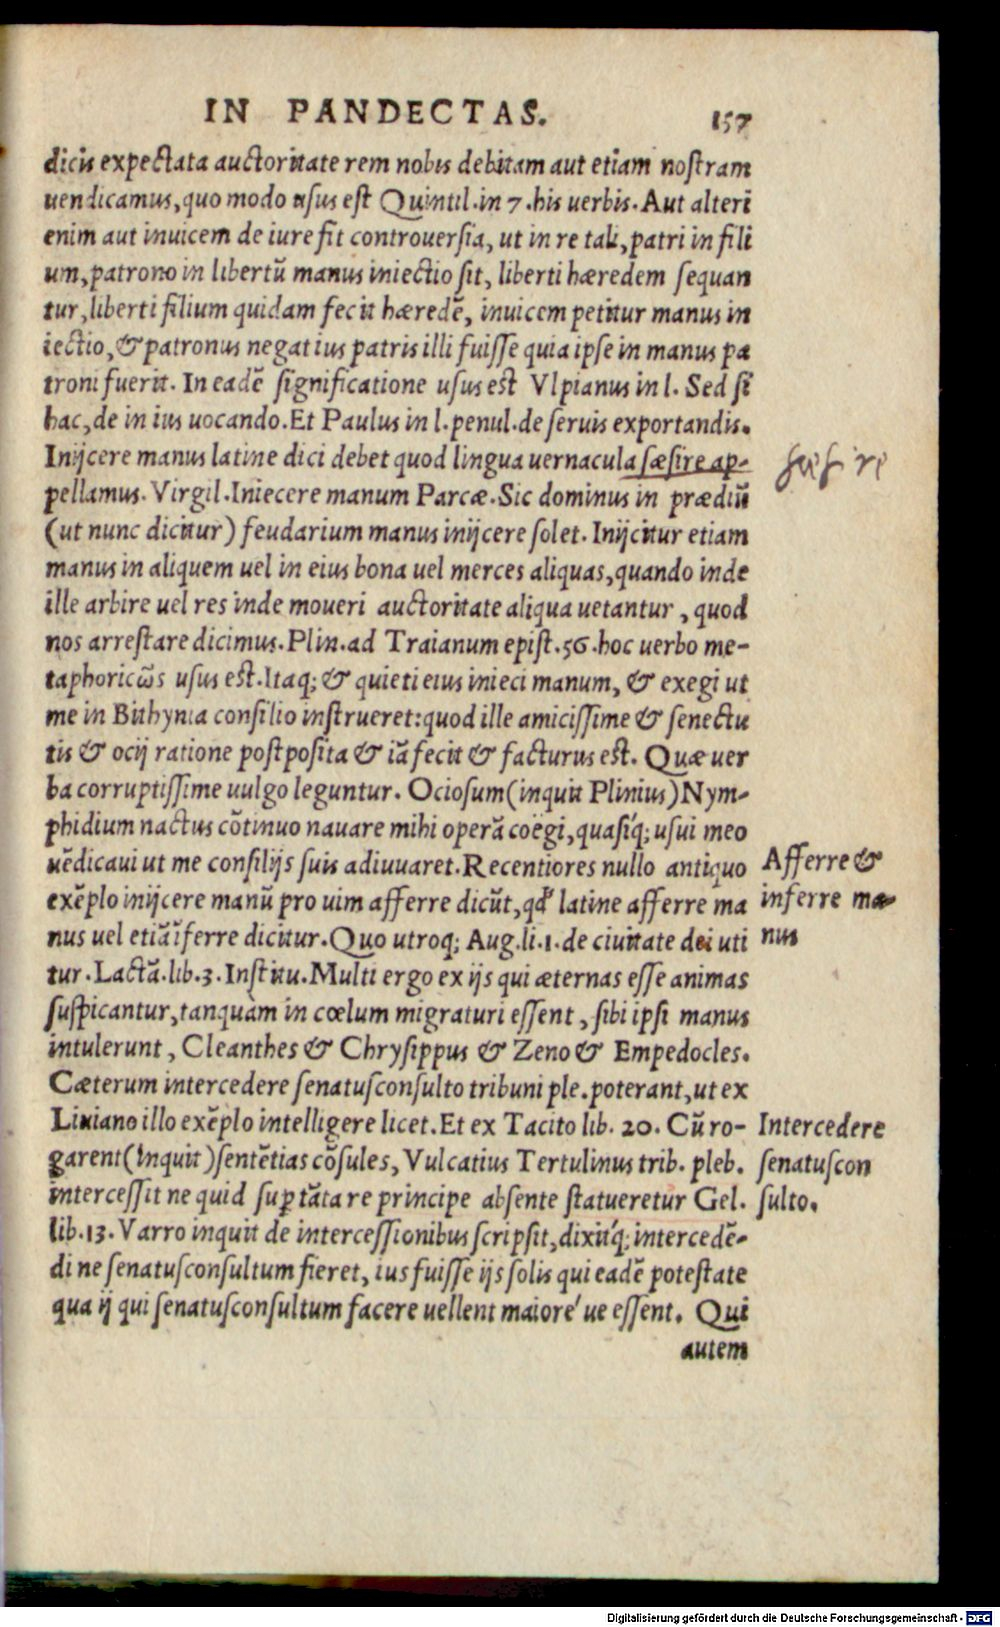 IN PANDECTAS. 157
dicis expectata auctoritate rem nobis debitam aut etiam nostram
uendicamus, quo modo usus est Quintil.in 7.his uerbis. Aut alteri
enim aut inuicem de iure fit controuersia, ut in re tali, patri in fili
um, patrono in libertū manus iniectio sit, liberti hæredem sequan
tur, liberti filium quidam fecit hæredē, inuicem petitur manus in
iectio, & patronus negat ius patris illi fuisse quia ipse in manus pa
troni fuerit. In eadē significatione usus est Vlpianus in l. Sed si
hac, de in ius uocando. Et Paulus in l.penul.de seruis exportandis.
Inijcere manus latine dici debet quod lingua uernacula sæsire ap-
sæsire
pellamus. Virgil. Iniecere manum Parcæ. Sic dominus in prædiū
(ut nunc dicitur) feudarium manus inijcere solet. Inijcitur etiam
manus in aliquem uel in eius bona uel merces aliquas, quando inde
ille arbire uel res inde moueri auctoritate aliqua uetantur, quod
nos arrestare dicimus. Plin.ad Traianum epist.56.hoc uerbo me-
taphoricῶs usus est. Itaq; & quieti eius inieci manum, & exegi ut
me in Bithynia consilio instrueret: quod ille amicissime & senectu
tis & ocij ratione postposita & iā fecit & facturus est. Quæ uer
ba corruptissime uulgo leguntur. Ociosum (inquit Plinius) Nym-
phidium nactus cōtinuo nauare mihi operā coëgi, quasiq́; usui meo
uēdicaui ut me consilijs suis adiuuaret. Recentiores nullo antiquo
Afferre &
exēplo inijcere manū pro uim afferre dicūt, qd̛ latine afferre ma
inferre ma-
nus uel etiā īferre dicitur. Quo utroq; Aug.li.1.de ciuitate dei uti
nus
tur. Lactā.lib.3. Institu. Multi ergo ex ijs qui æternas esse animas
suspicantur, tanquàm in cœlum migraturi essent, sibi ipsi manus
intulerunt, Cleanthes & Chrysippus & Zeno & Empedocles.
Cæterum intercedere senatusconsulto tribuni ple.poterant, ut ex
Liuiano illo exēplo intelligere licet. Et ex Tacito lib. 20. Cū ro-
Intercedere
garent (inquit) sentētias cōsules, Vulcatius Tertulinus trib. pleb.
senatuscon
intercessit ne quid sup̱ tāta re principe absente statueretur Gel.
sulto.
lib.13. Varro inquit de intercessionibus scripsit, dixitq́; intercedē-
di ne senatusconsultum fieret, ius fuisse ijs solis qui eadē potestate
qua ij qui senatusconsultum facere uellent maioré ue essent. Qui
autem
Digitalisierung gefördert durch die Deutsche Forschungsgemeinschaft - DFG